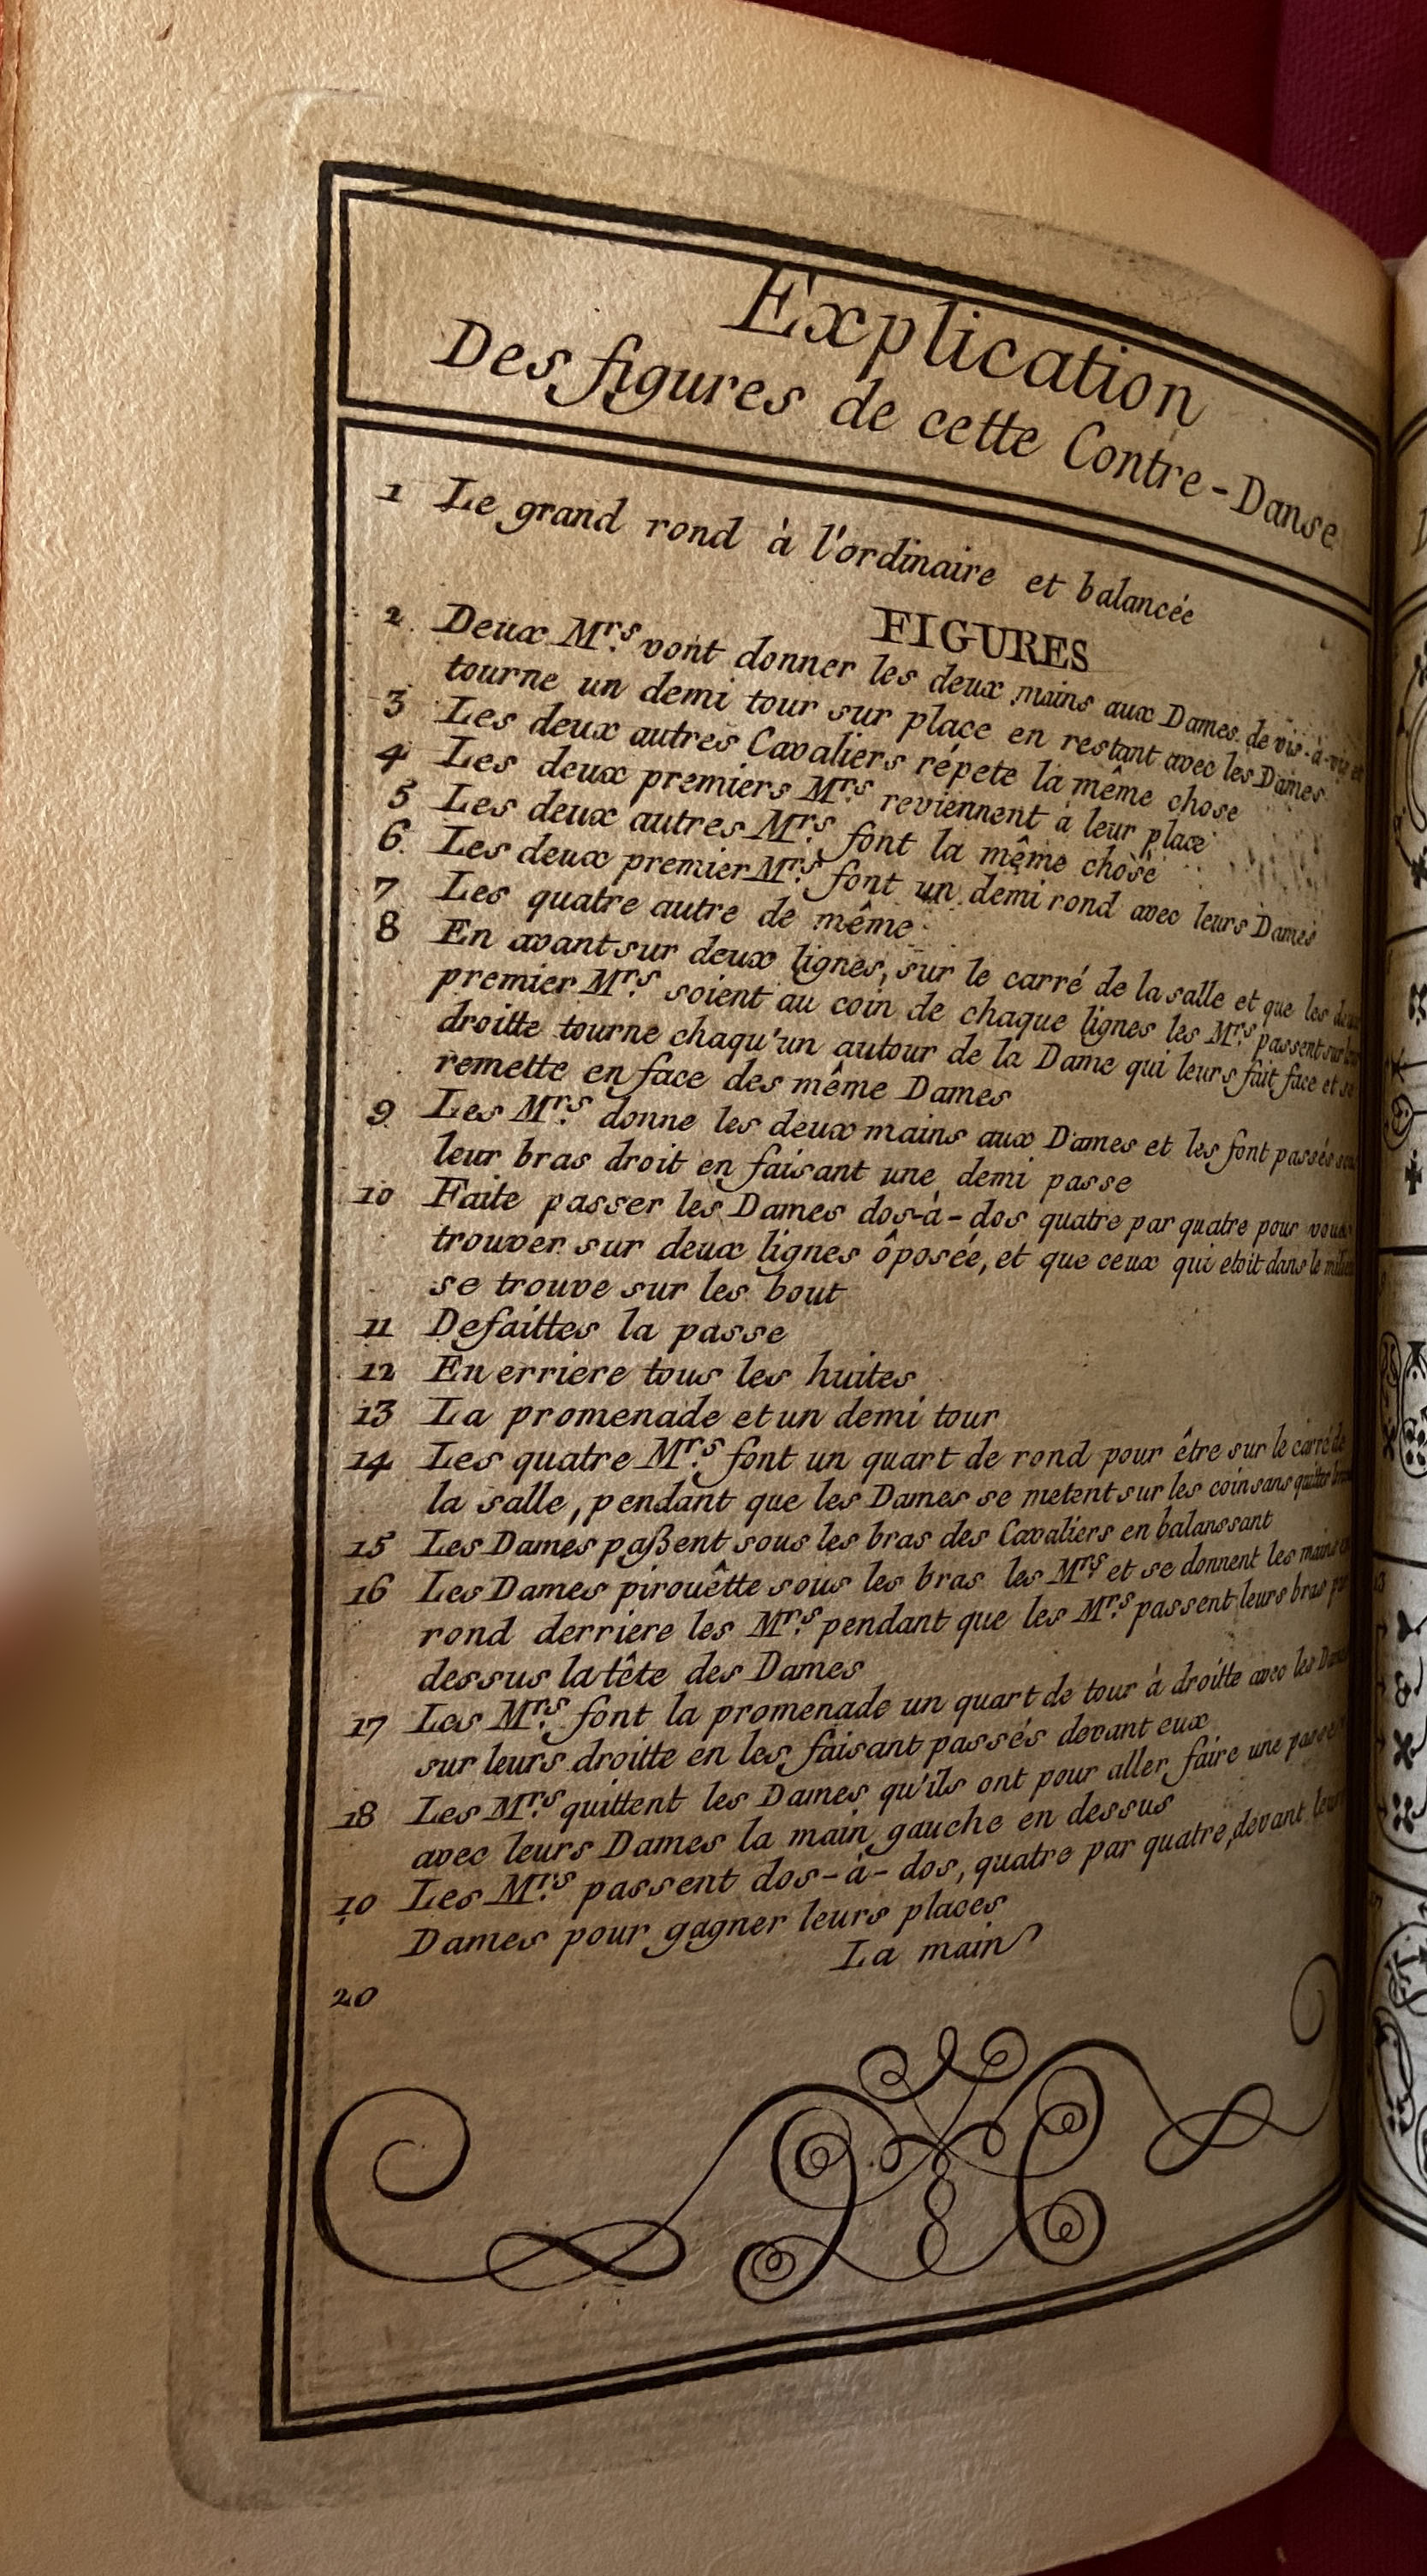 Explication
Des figures de cette Contre-Danse
1 Le grand rond à l'ordinaire et balancée
FIGURES
2. Deux Mrs. vont donner les deux mains aux Dames de vis-à-vis et
tourne un demi tour sur place en restant avec les Dames
3 Les deux autres Cavaliers répete la même chose
4 Les deux premiers Mrs. reviennent à leur place
5 Les deux autres Mrs. font la même chose
6. Les deux premier Mrs. font un demi rond avec leurs Dames
7 Les quatre autre de même
8 En avant sur deux lignes, sur le carré de la salle et que les deux
premier Mrs. soient au coin de chaque lignes les Mrs. passent sur leur
droitte tourne chaqu'un autour de la Dame qui leurs fait face et se
remette en face des même Dames
9 Les Mrs. donne les deux mains aux Dames et les font passés sous
leur bras droit en faisant une demi passe
10 Faite passer les Dames dos-à-dos quatre par quatre pour vous
trouver sur deux lignes ôposée, et que ceux qui etoit dans le milieu
se trouve sur les bout
11 Defaittes la passe
12 En erriere tous les huites
13 La promenade et un demi tour
14 Les quatre Mrs. font un quart de rond pour être sur le carré de
la salle, pendant que les Dames se metent sur les coin sans quitter
15 Les Dames paßent sous les bras des Cavaliers en balanssant
16 Les Dames pirouêtte sous les bras les Mrs. et se donnent les mains en
rond derriere les Mrs. pendant que les Mrs. passent leurs bras par
dessus la tête des Dames
17 Les Mrs. font la promenade un quart de tour à droitte avec les Dames
sur leurs droitte en les faisant passés devant eux
18 Les Mrs. quittent les Dames qu'ils ont pour aller faire une passe
avec leurs Dames la main gauche en dessus
10 Les Mrs. passent dos-à-dos, quatre par quatre, devant leurs
Dames pour gagner leurs places
La main
20